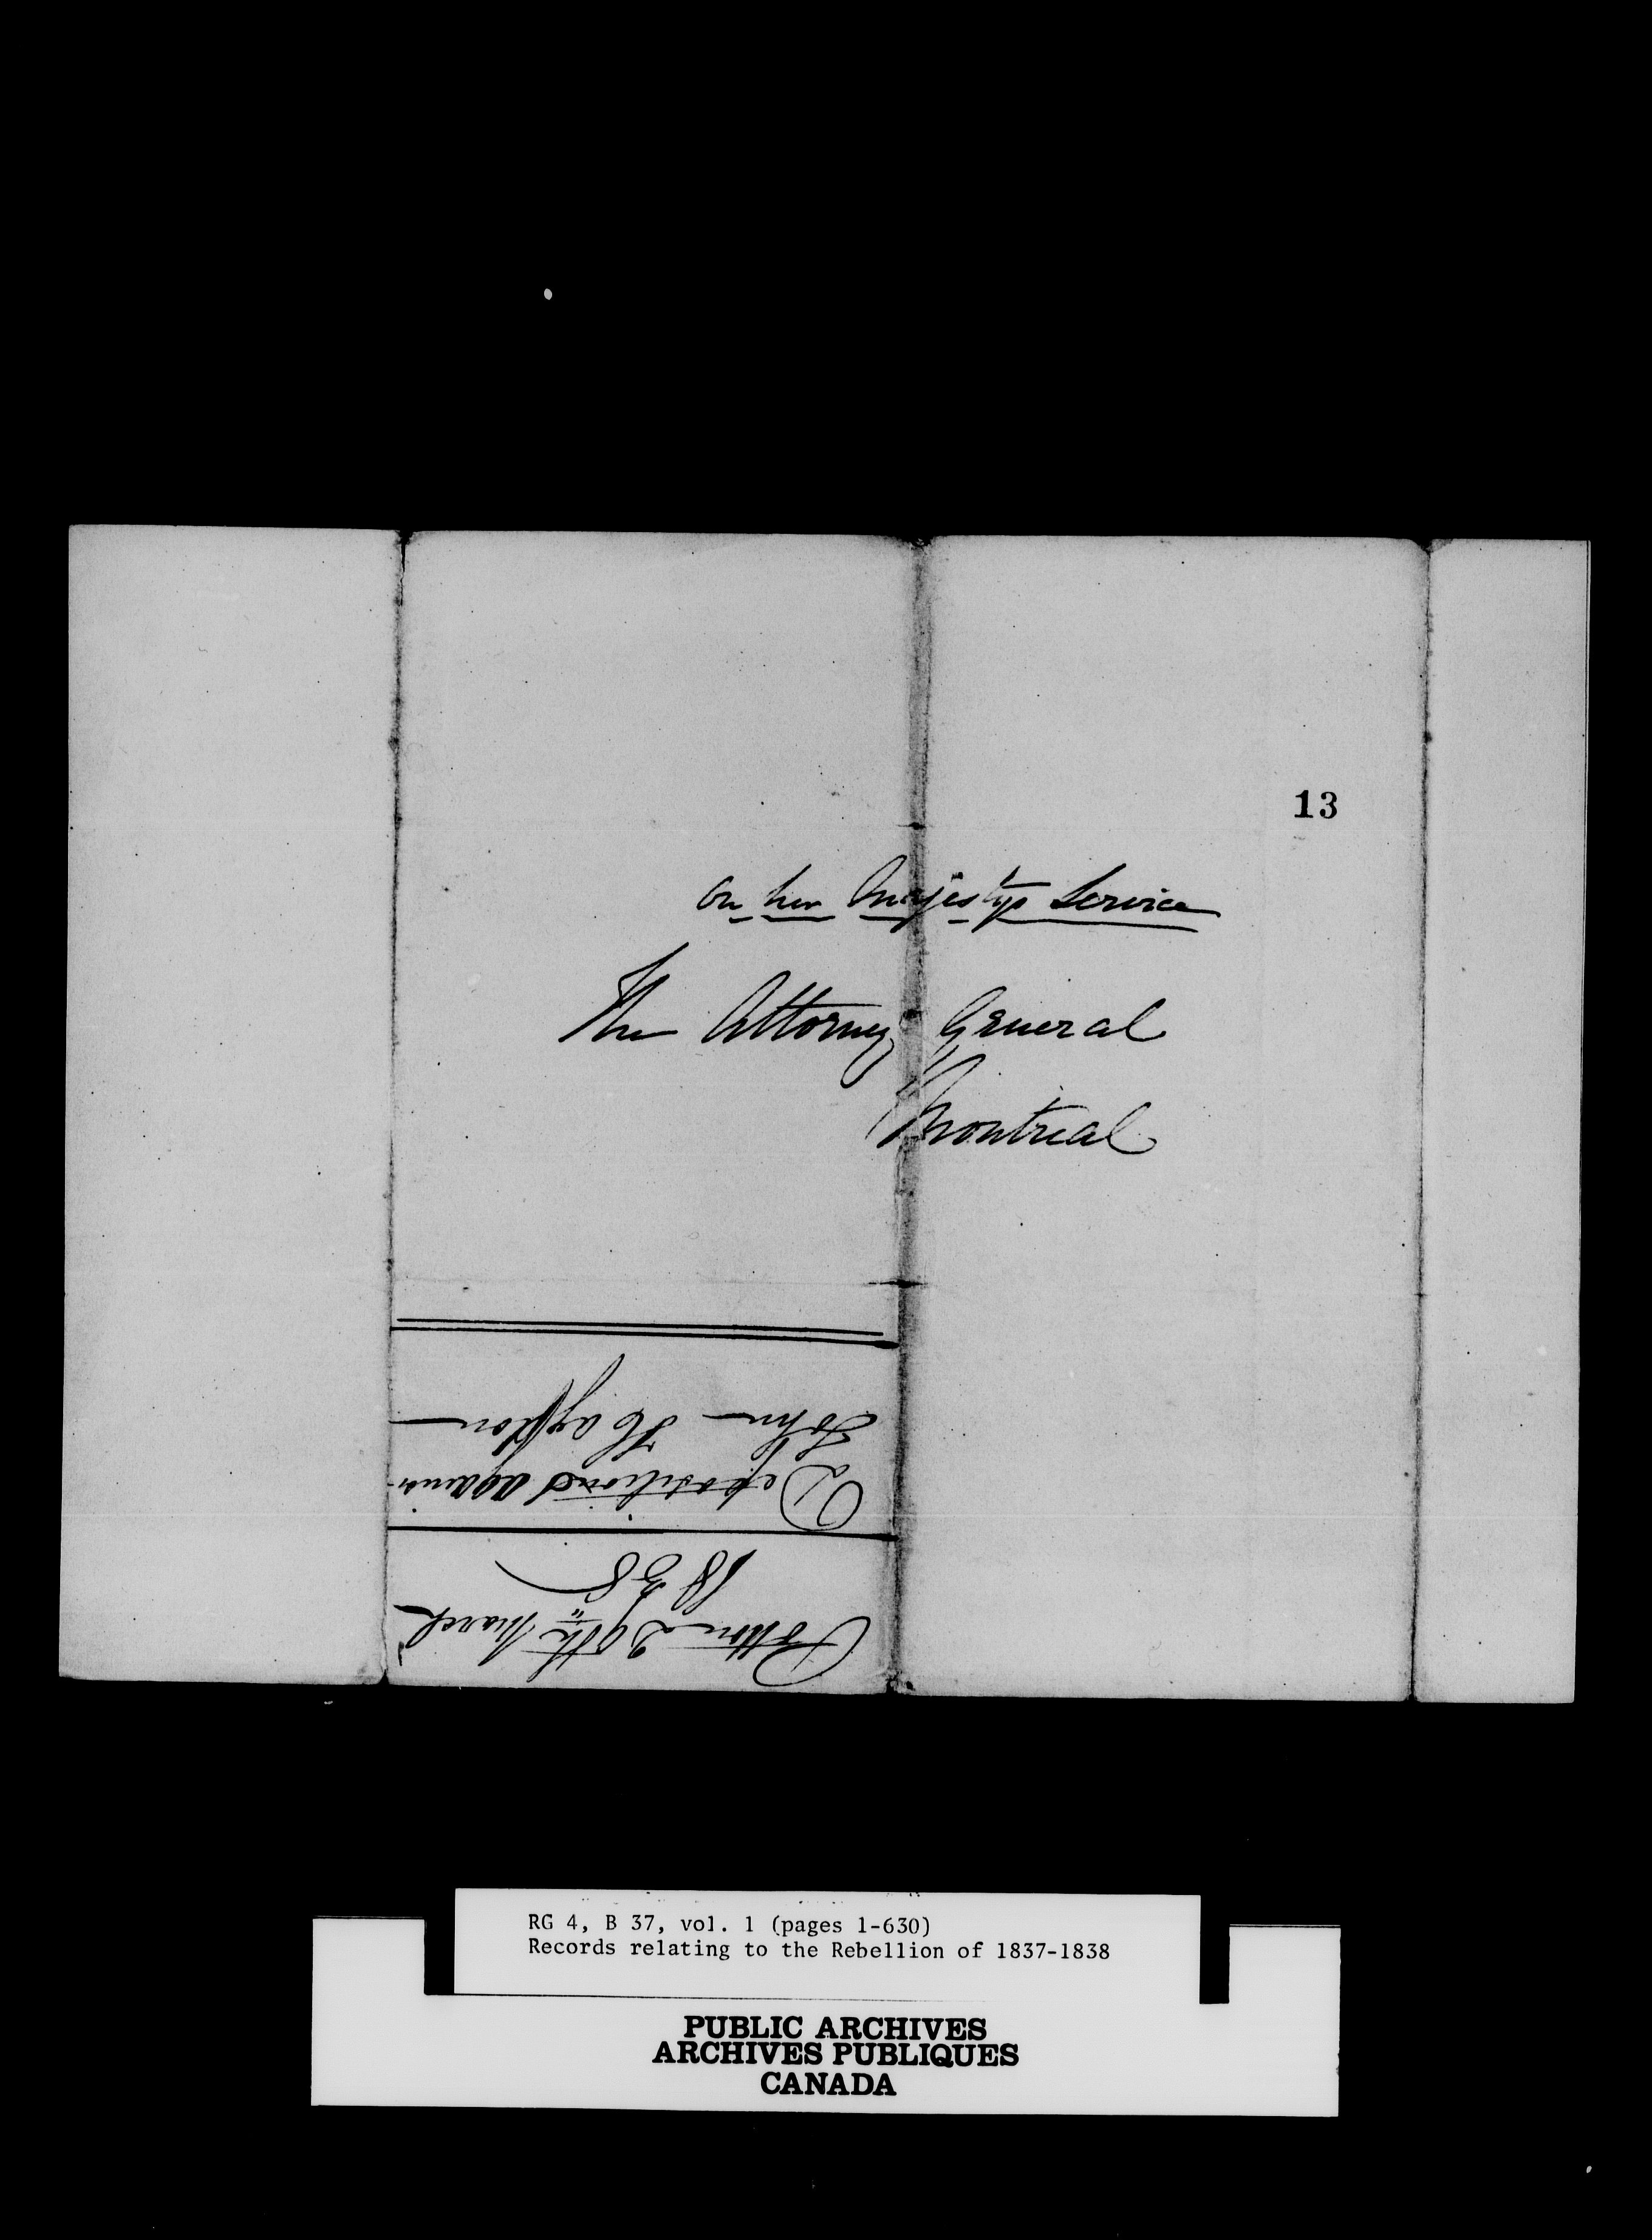 13
On her Majestys Service
The Attorney General
Montreal
Potton 29th March
1838
Depositions against
John
RG 4, B 37, vol. 1 (pages 1-630)
Records relating to the Rebellion of 1837-1838
PUBLIC ARCHIVES
ARCHIVES PUBLIQUES
CANADA